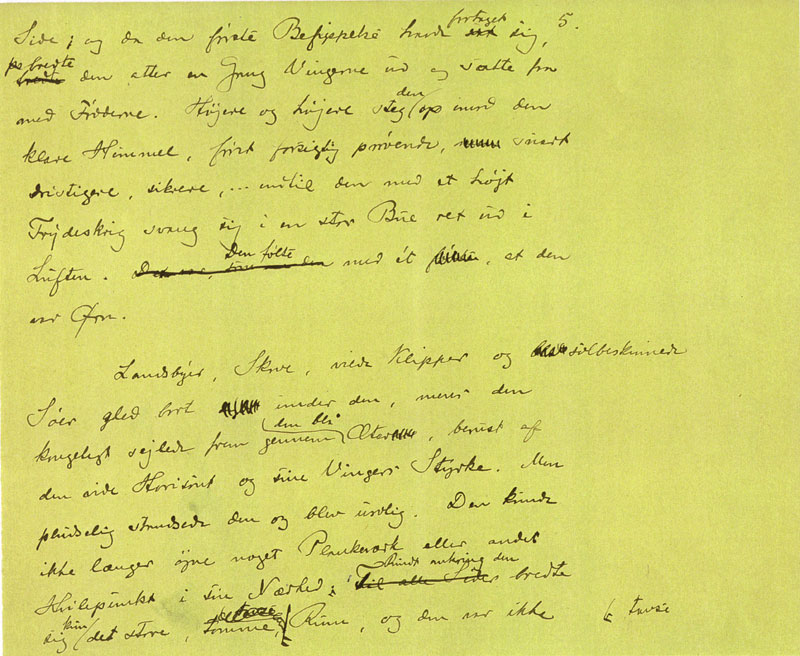 Side; og da den første Befippelse havde fortaget sig, 5.
bredte den atter en Gang Vingerne ud og satte fra
med Fødderne. Højere og højere steg den op imod den
klare Himmel, først forsigtig prøvende, snart
dristigere, sikrere, ... indtil den med et højt
Frydeskrig svang sig i en stor Bue ret ud i
Luften. Den følte med ét, at den
var Ørn.
Landsbyer, Skove, vide Klipper og solbeskinnede
Søer gled bort under den, mens den
kongeligt sejlede frem gennem den blå Æter, berust af
den vide Horisont og sine Vingers Styrke. Men
pludselig studsede den og blev urolig. Den kunde
ikke længer øjne noget Plankeværk eller andet
Hvilepunkt i sin Nærhed; Rundt omkring den
Til alle Sider bredte
sig kun det store, tomme, Rum, og den var ikke tavse